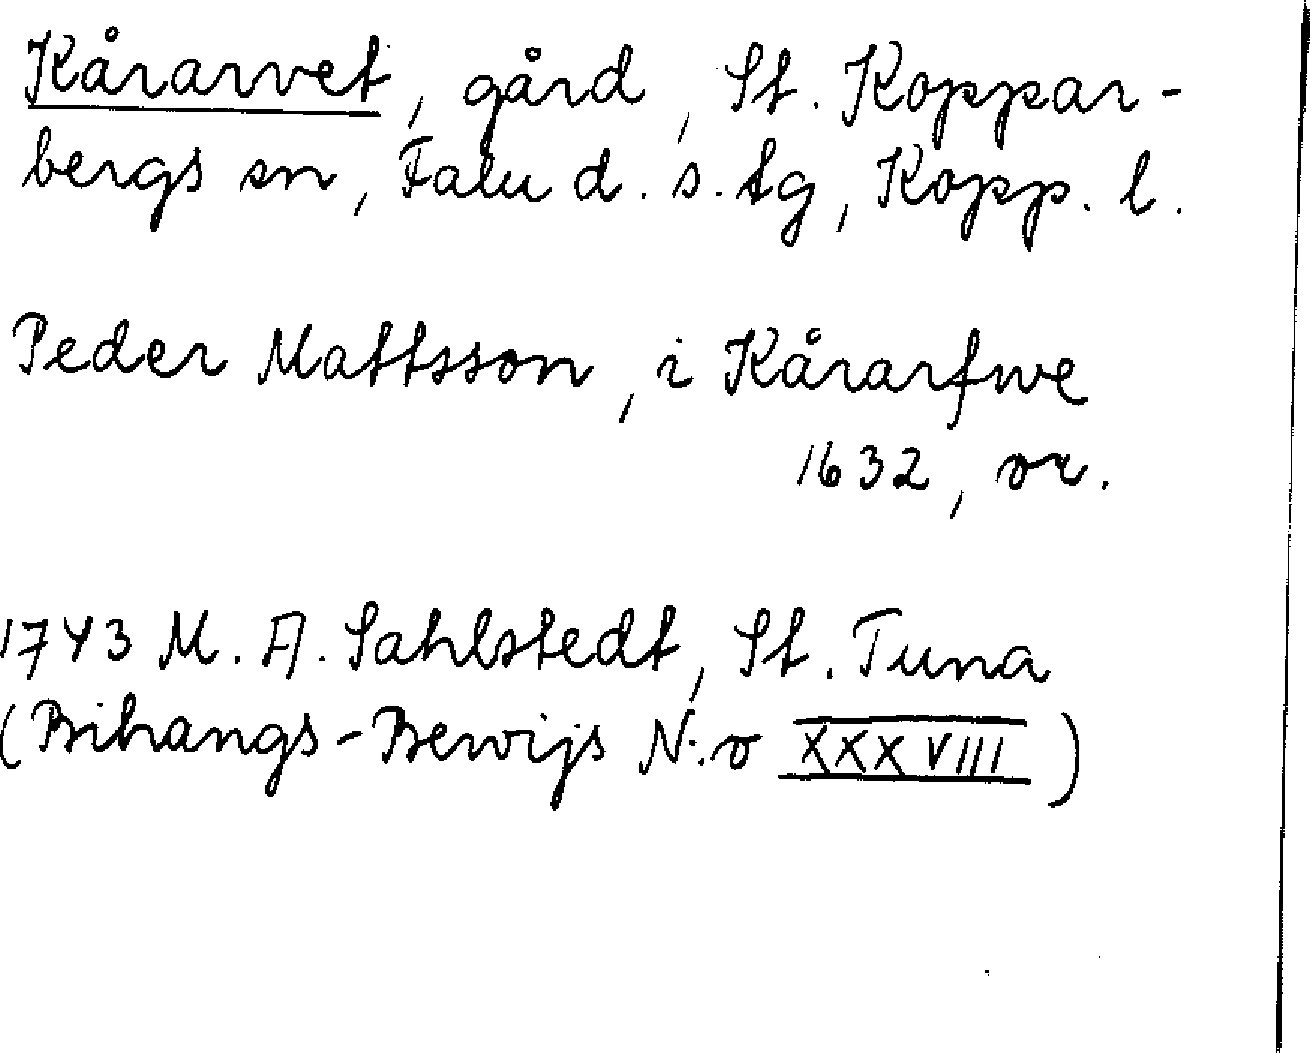 Kårarvet, gård, St. Koppar-
bergs sn, Falu d. s. tg, Kopp. l.
Peder Mattsson, i Kårarfwe
1632, or.
1743 M. A. Sahlstedt, St. Tuna
(Bihangs-Bewijs N:o XXXVIII)